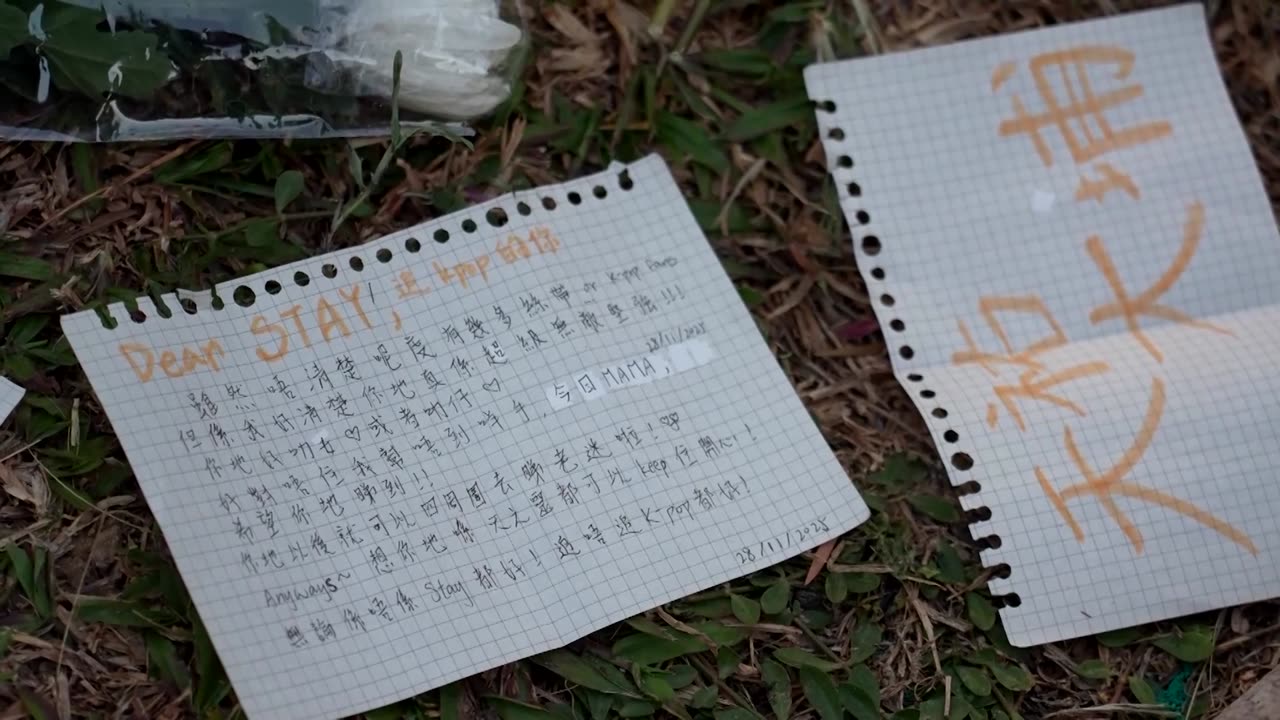 Dear STAY, 追 kpop 的你
雖然唔清楚呢度有幾多絲帶 or k-pop fans
但係我好清楚你地真係超級無敵堅強!!!
你地好叻女♡或者叻仔♡
28/11/2025
好對唔住我幫唔到咩手,今日MAMA,
希望你地睇到!!
你地以後就可以四周圍去睇老迷啦!♡♡
Anyways~ 想你地喺天之靈都可以 keep 住開心!!
無論你唔係 Stay 都好! 追唔追 Kpop 都好!
28/11/2025
天祐大埔